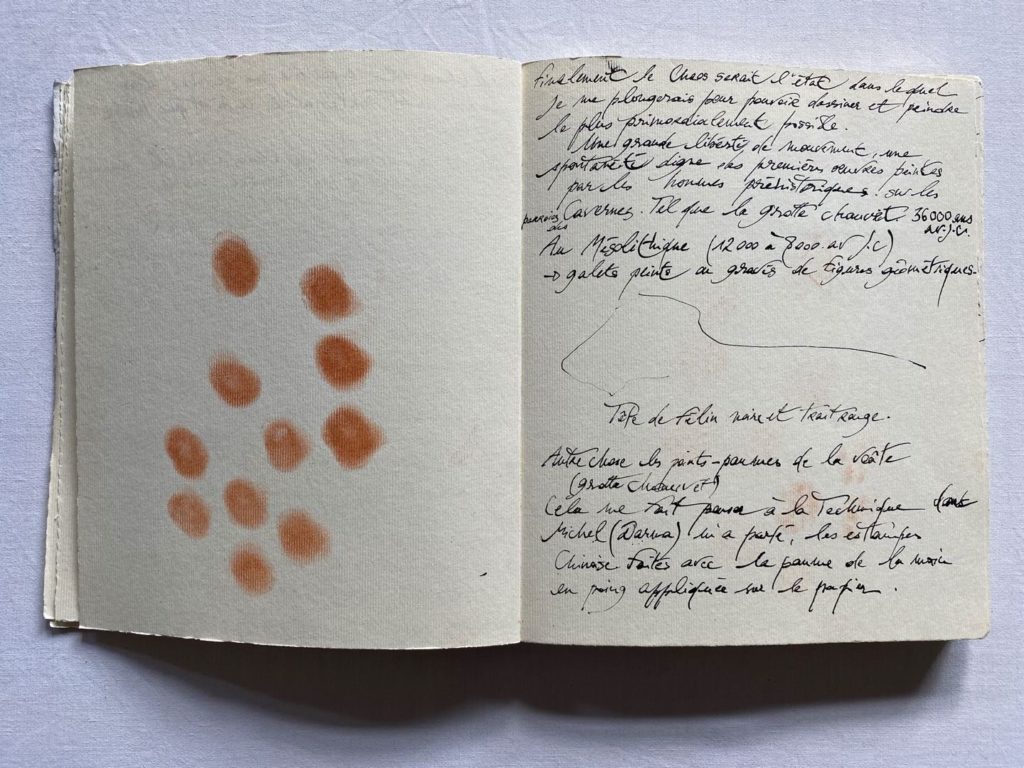 Finalement le Chaos serait l'état dans lequel
je me plongerais pour pouvoir dessiner et peindre
le plus primordialement possible.
Une grande liberté de mouvement, une
spontanéité digne des premières œuvres peintes
par les hommes préhistoriques sur les
parois des Cavernes. Tel que la grotte chauvet. 36000 ans av. J.C.
Au Mésolithique (12000 à 8000 av J.C)
→ galets peints ou gravés de figures géométriques.
Tête de félin noire et trait rouge.
Autre chose les points-paumes de la voûte
(grotte Chauvet)
Cela me fait penser à la Technique dont
Michel (Darma) m'a parlé, les estampes
Chinoise faites avec la paume de la main
en poing appliquée sur le papier.